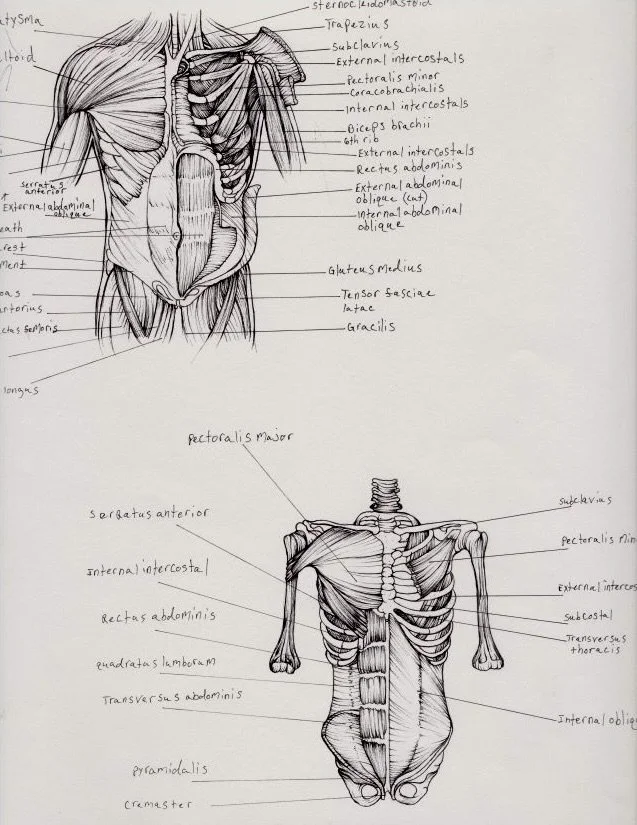 sternocleidomastoid
Trapezius
Subclavius
External intercostals
Pectoralis minor
Coracobrachialis
Internal intercostals
Biceps brachii
6th rib
External intercostals
Rectus abdominis
External abdominal
oblique (cut)
Internal abdominal
oblique
Gluteus medius
Tensor fasciae
latae
Gracilis
atysma
ltoid
i
serratus
anterior
External abdominal
oblique
eath
rest
ment
oas
artorius
ctus femoris
longus
pectoralis major
serratus anterior
Internal intercostal
Rectus abdominis
quadratus lumborum
Transversus abdominis
pyramidalis
cremaster
subclavius
pectoralis min
External intercos
subcostal
Transversus
thoracis
Internal obliq